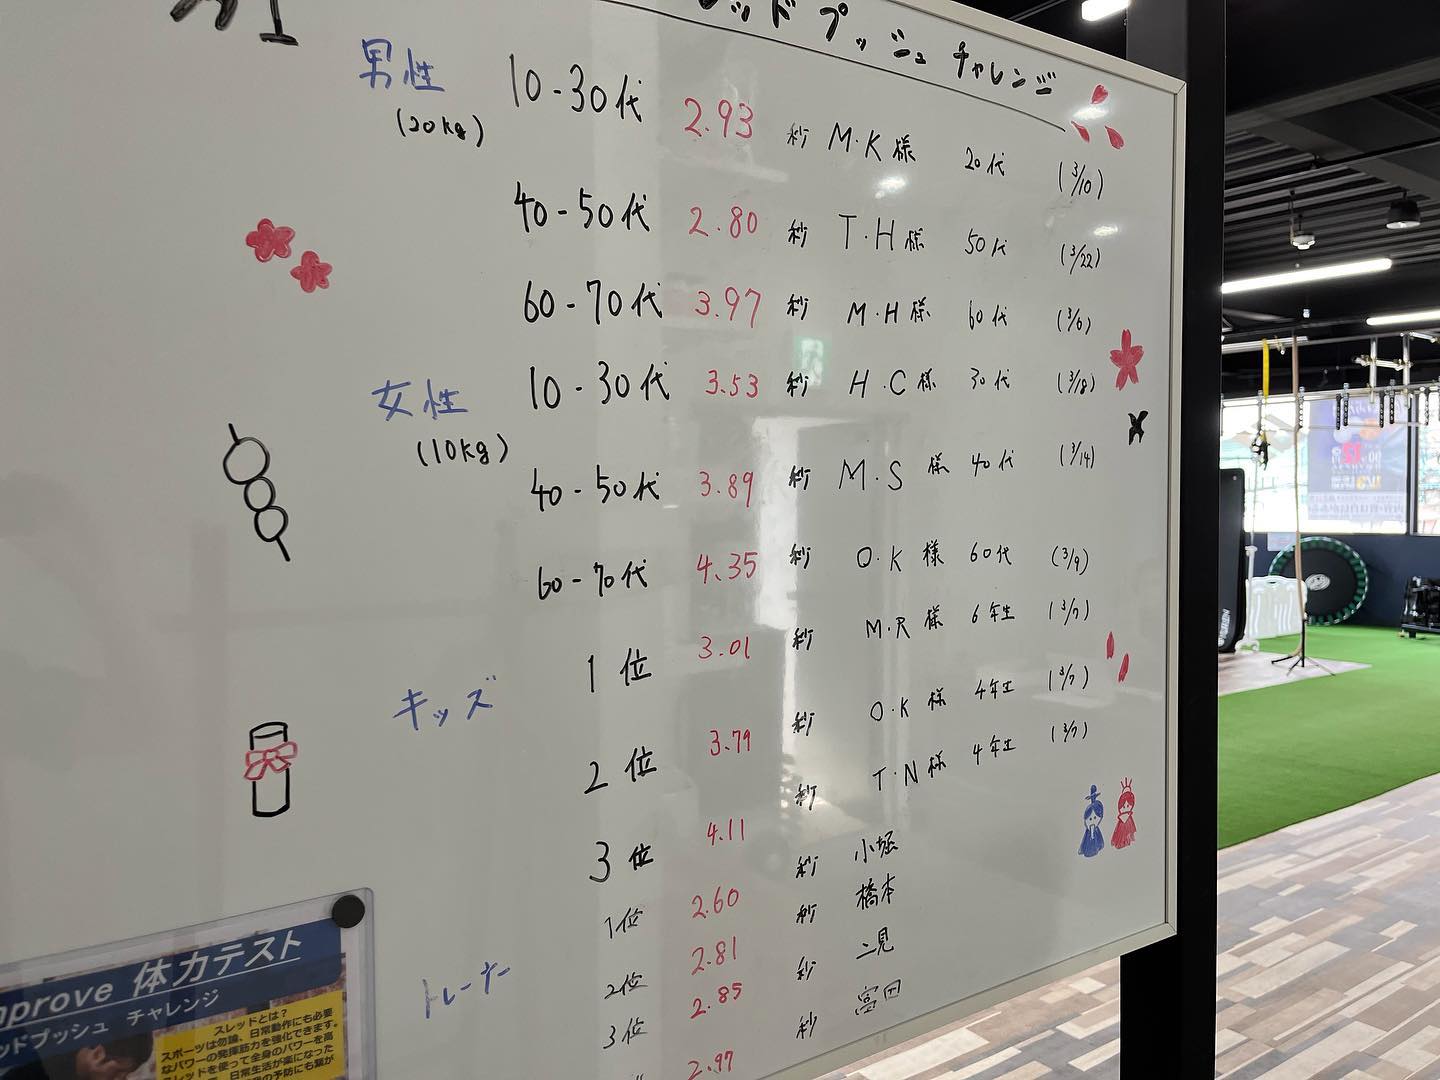 レッド プッシュ チャレンジ
男性 10-30代 2.93 秒 M・K様 20代 (3/10)
(20kg)
40-50代 2.80 秒 T・H様 50代 (3/22)
60-70代 3.97 秒 M・H様 60代 (3/6)
女性 10-30代 3.53 秒 H・C様 30代 (3/18)
(10kg)
40-50代 3.89 秒 M・S様 40代 (3/14)
60-70代 4.35 秒 O・K様 60代 (3/9)
キッズ 1位 3.01 秒 M・R様 6年生 (3/7)
2位 3.79 秒 O・K様 4年生 (3/7)
3位 4.11 秒 T・N様 4年生 (3/7)
トレーナー 1位 2.60 秒 小堀
2位 2.81 秒 橋本
3位 2.85 秒 二見
2.97 秒 富田
mprove 体力テスト
ッドプッシュ チャレンジ
スレッドとは?
スポーツは勿論、日常動作にも必要
なパワーの発揮筋力を強化できます。
スレッドを使って全身のパワーを高
日常生活が楽になった
の予防にも繋が